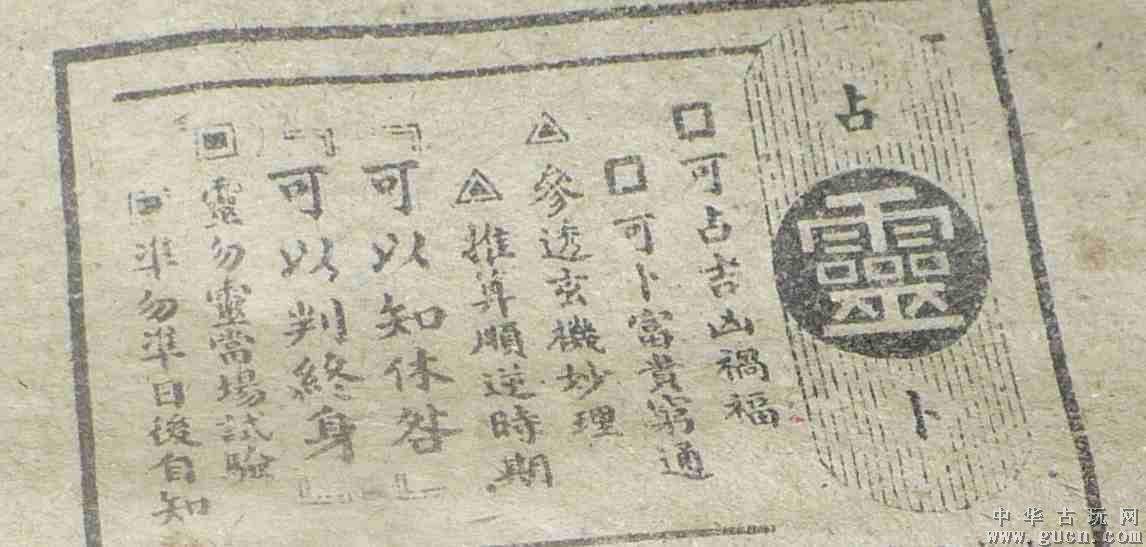 占靈卜
可占吉凶禍福
可卜富貴窮通
參透玄機妙理
推算順逆時期
可以知休咎
可以判終身
靈勿靈當場試驗
準勿準日後自知
中华古玩网
www.gucn.com